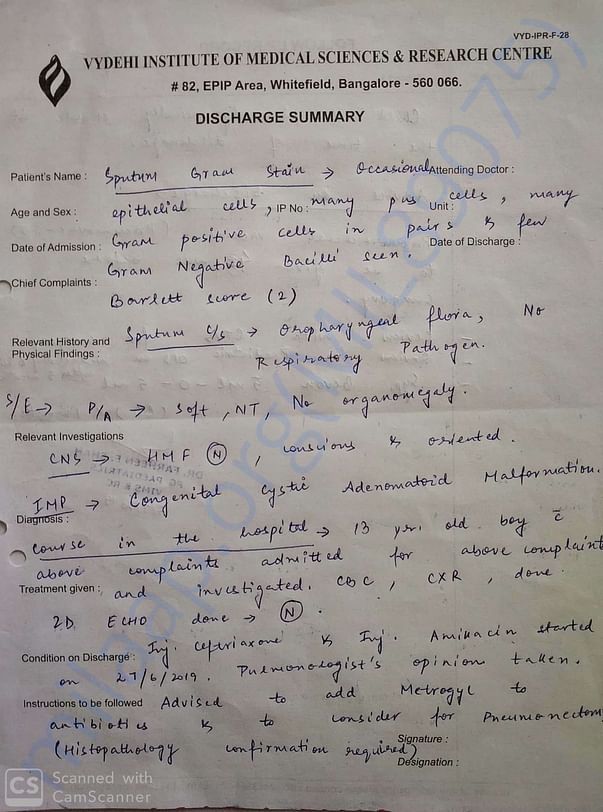 VYD-IPR-F-28
VYDEHI INSTITUTE OF MEDICAL SCIENCES & RESEARCH CENTRE
# 82, EPIP Area, Whitefield, Bangalore - 560 066.
DISCHARGE SUMMARY
Patient's Name : Sputum Gram Stain → Occasional Attending Doctor :
Age and Sex : epithelial cells, IP No : many pus cells, Unit : many
Date of Admission : Gram positive cells in pairs & few Date of Discharge :
Gram Negative Bacilli seen.
Chief Complaints :
Barlett score (2)
Relevant History and Physical Findings : Sputum c/s → Oropharyngeal flora, No
Respiratory Pathogen.
S/E → P/A → soft, NT, No organomegaly.
Relevant Investigations
CNS → HMF (N), conscious & oriented.
IMP → Congenital Cystic Adenomatoid Malformation.
Diagnosis :
course in the hospital → 13 yr. old boy c̄
above complaints admitted for above complaint
Treatment given : and investigated. CBC, CXR, done.
2D ECHO done → (N).
Condition on Discharge : Inj. Ceftriaxone & Inj. Amikacin started
on 27/6/2019. Pulmonologist's opinion taken.
Instructions to be followed Advised to add Metrogyl to
antibiotics & to consider for Pneumonectom
(Histopathology confirmation required) Signature :
Designation :
CS Scanned with
CamScanner